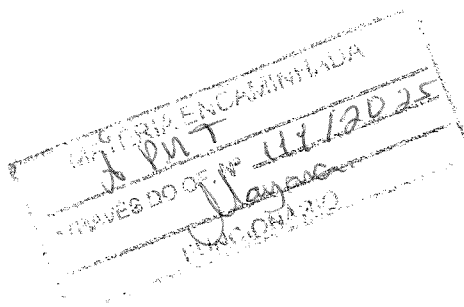 MATÉRIA ENCAMINHADA
A PMT
ATRAVÉS DO OF. Nº 111/2025
Mayara
FUNCIONÁRIO